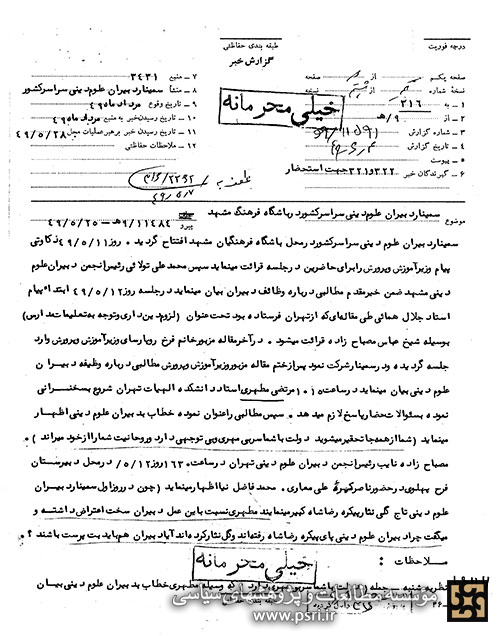 درجه فوریت
طبقه بندی حفاظتی
گزارش خبر
صفحه یکم از صفحه
نسخه شماره از نسخه
۱ - به ۳۱۶
۲ - از ۹/هـ
۳ - شماره گزارش
۴ - تاریخ گزارش
۵ - پیوست
۶ - گیرندگان خبر ۳۲۲ و ۳۲۱ جهت استحضار
۷ - منبع ۳۴۳۱
۸ - منشأ سمینار دبیران علوم دینی سراسر کشور
۹ - تاریخ وقوع مرداد ماه ۴۹
۱۰ - تاریخ رسیدن خبر به منبع مرداد ماه ۴۹
۱۱ - تاریخ رسیدن خبر برهبر عملیات محل ۴۹/۵/۲۸
۱۲ - ملاحظات حفاظتی
خیلی محرمانه
موضوع سمینار دبیران علوم دینی سراسر کشور در باشگاه فرهنگ مشهد
پیرو ۹/۱۱۴۸۴هـ - ۴۹/۵/۲۵
سمینار دبیران علوم دینی سراسر کشور در محل باشگاه فرهنگیان مشهد افتتاح گردید ۰ روز ۴۹/۵/۱۱ ذکاوتی
پیام وزیر آموزش و پرورش را برای حاضرین در جلسه قرائت مینماید سپس محمد علی تولائی رئیس انجمن دبیران علوم
دینی مشهد ضمن خیر مقدم مطالبی درباره وظائف دبیران بیان مینماید در جلسه روز ۴۹/۵/۱۲ ابتدا پیام
استاد جلال همائی طی مقاله‌ای که از تهران فرستاده بود تحت عنوان ( لزوم دین داری و توجه به تعلیمات مدارس)
بوسیله شیخ عباس مصباح زاده قرائت میشود ۰ در آخر مقاله مزبور خانم فرخ رو پارسای وزیر آموزش و پرورش وارد
جلسه گردیده و در سمینار شرکت نمود پس از ختم مقاله مزبور وزیر آموزش و پرورش مطالبی درباره وظیفه دبیران
علوم دینی بیان مینماید در ساعت ۱۰ مرتضی مطهری استاد دانشکده الهیات تهران شروع بسخنرانی
نموده بسئوالات حضار پاسخ لازم میدهد ۰ سپس مطالبی را عنوان نموده خطاب به دبیران علوم دینی اظهار
مینماید (شما از همه جا تحقیر میشوید دولت با شما سر بی مهری و بی توجهی دارد و روحانیت شما را از خود میراند ) ۰
مصباح زاده نایب رئیس انجمن دبیران علوم دینی تهران در ساعت ۱۶ روز ۵/۱۲/ در محل دبیرستان
فرح پهلوی در حضور ناصر علی معماری ۰ محمد فاضل نیا اظهار مینماید (چون در روز اول سمینار دبیران
علوم دینی تاج گلی نثار پیکره رضا شاه کبیر مینمایند مطهری نسبت باین عمل دبیران سخت اعتراض داشته و
میگفت چرا دبیران علوم دینی پای پیکره رضا شاه رفته‌اند و گل نثار کرده‌اند آیا دبیران هم باید بت پرست باشند ؟ ۰
ملاحظات :
خیلی محرمانه
نظریه شنبه ـ جمله که وسیله مطهری خطاب به دبیران علوم دینی بیان
موسسه مطالعات و پژوهشهای سیاسی
www.psri.ir